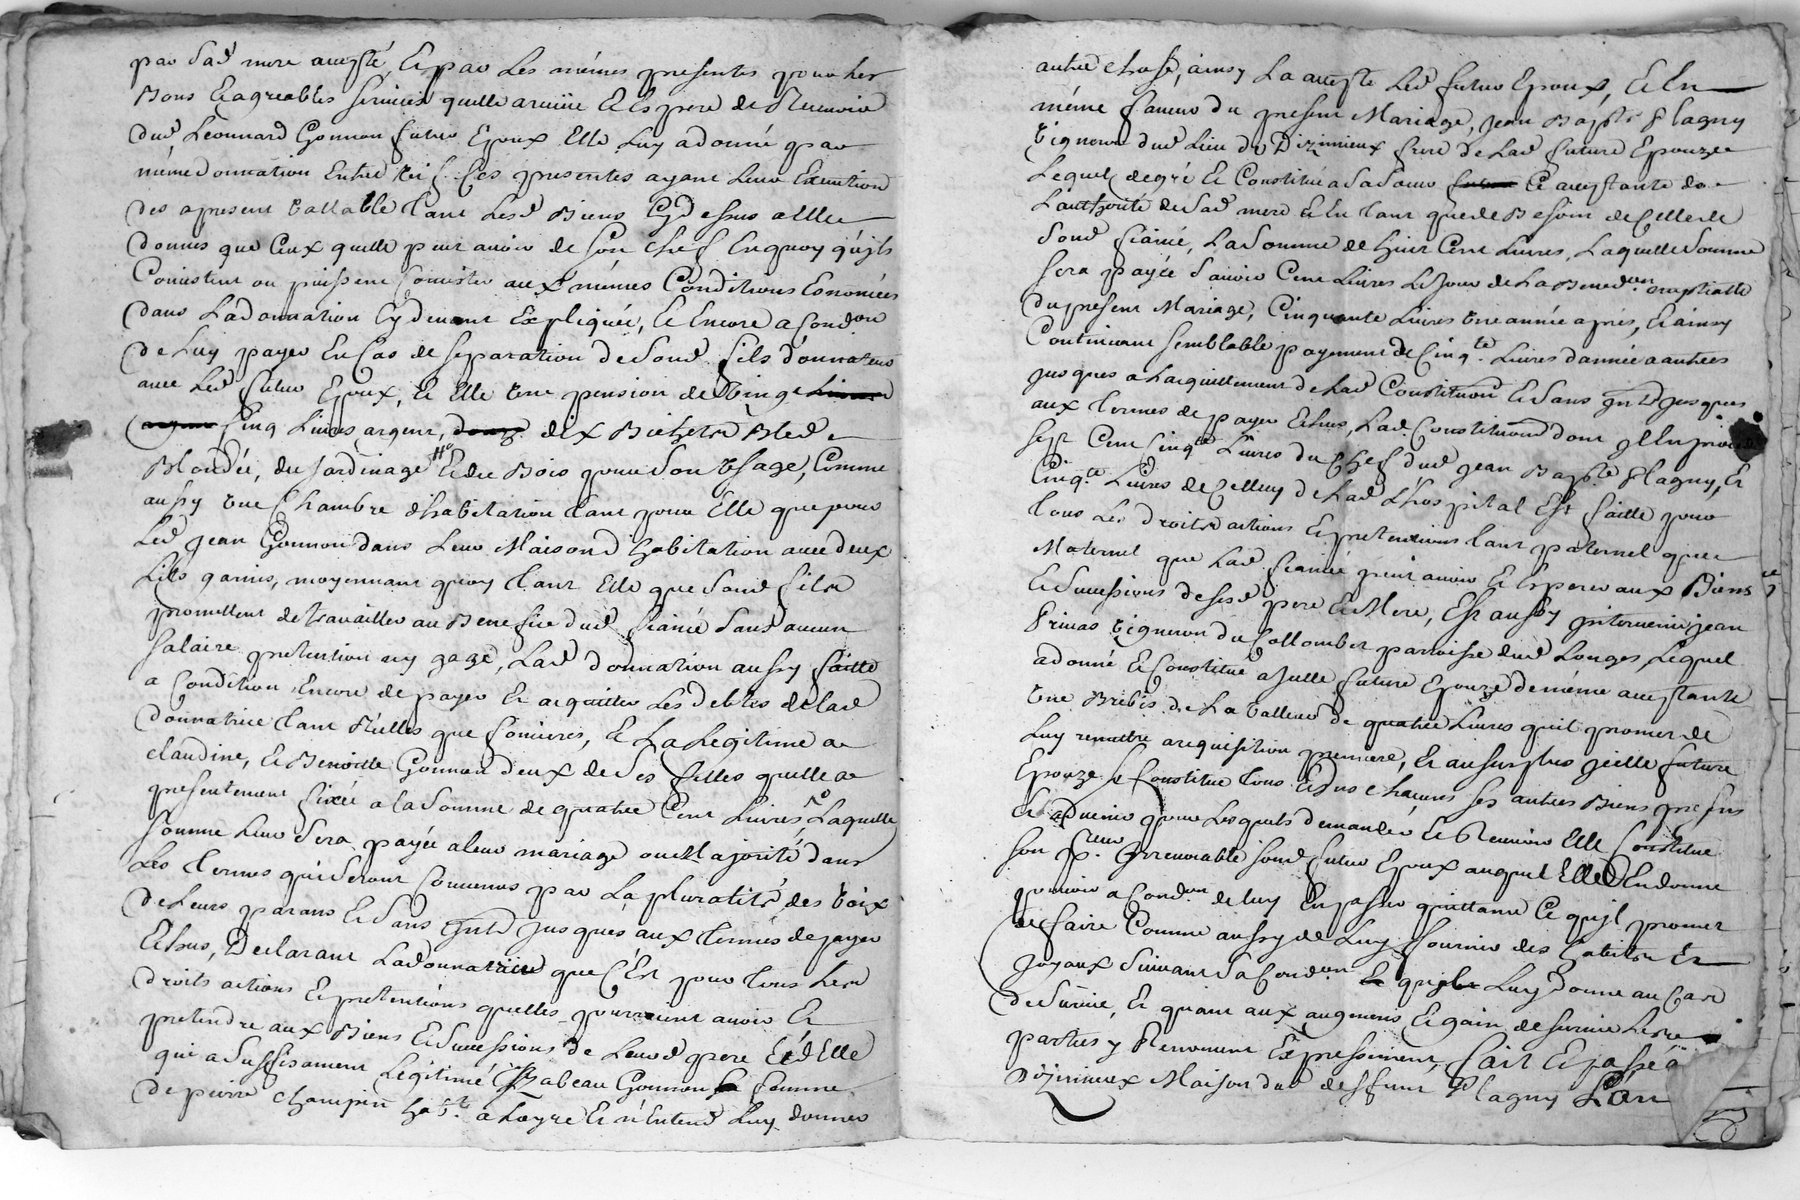 par sad mere acceptée, Et par les mêmes presentes pour les
Bons Et agreables services quelle a reçue Et Espere de Recevoir
dud Leonnard Gonnon futur Epoux Elle Luy a donné par
même donnation Entre vifs Ces presentes ayant leur Execution
des apresent vallable tant Lesd Biens Cydessus a Elle
donnés que Ceux quelle peut avoir de son Chef Enquoy quils
Consistent ou puissent Consister aux mêmes Conditions Enoncées
dans Ladonnation Cydevant Expliquée, Et Encore a Condon
de Luy payer En Cas de separation de Sond fils donnateur
avec Led futur Epoux, Et Elle une pension de Vingt
Cinq Livres argent, dix Bichets Bled
Blondée, du Jardinage Et du Bois pour son Usage, Comme
aussy une Chambre dhabitation tant pour Elle que pour
Led Jean Gonnon dans Leur Maison d habitation avec deux
Lits garnis, moyennant quoy tant Elle que Sond fils
promettent de travailler au Benefice dud fiancé Sans aucun
salaire pretention ny gage, Lad donnation aussy faitte
a Condition Encore de payer Et acquitter Les debtes de lad
donnatrice tant Réelles que foncieres, Et La Legitime a
claudine, Et Benoitte Gonnon deux de Ses filles quelle a
presentement fixée a la Somme de quatre Cent Livres Laquelle
somme Leur Sera payée a leur mariage ou Majorité dans
Les termes qui Seront Convenus par La pluratité des Voix
de Leurs parans Et Sans Int jusques aux termes de payer
Echus, Declarant Ladonnatrice que C'Est pour tous Les
droits actions Et pretentions quelles pourroient avoir Et
pretendre aux Biens Et Successions de Leurd pere Et d Elle
qui a Suffisament Legitimé Izabeau Gonnon femme
de pierre Champin habt a Layre Et n'Entend Luy donner
autre chose, ainsy La accepte Led futur Epoux, Et En
même faveur du present Mariage, Jean Bapte Plagny
Vigneron dud Lieu de Dizimieux frere de Lad future Epouze
Lequel de gré Et Constitué a Sa Sœur Ce acceptante de
Lauthorité de Sad mere Et En tant que de Besoin de Celle de
Sond fiancé, La Somme de huit Cent Livres, Laquelle Somme
sera payée Savoir Cent Livres Le Jour de La Benedon nuptialle
du present Mariage, Cinquante Livres Une année apres, Et ainsy
Continuant semblable payement de Cinqte Livres dannée a autres
jusques a Lacquittement de Lad Constitution Et Sans Int jusques
aux termes de payer Echus, Lad Constitution dont
sept Cent Cinqte Livres du Chef dud Jean Bapte Plagny, Et
Cinqte Livres de Celluy de Lad Lhospital Est faitte pour
tous Les droits actions Et pretentions tant paternel que
Maternel que Lad fiancée peut avoir Et Esperer aux Biens
Et Successions de Sesd pere Et Mere, Est aussy Intervenu Jean
Privas Vigneron du Collombet parroisse dud Longes, Lequel
a donné Et Constitué a Jcelle future Epouze de même acceptante
Une Brebis de La Valleur de quatre Livres quil promet de
Luy remettre a requisition premiere, Et au Surplus Jcelle future
Epouze Se Constitue tous Et Uns Chacuns Ses autres Biens presens
Et advenir pour Lesquels demander Et Recevoir Elle Constitue
son preur Irrevocable Sond futur Epoux auquel Elle En donne
pouvoir a Condon de luy En passer quittance Ce quil promet
de faire Comme aussy de Luy fournir des habits Et
Joyaux Suivant Sa Condon quils Luy donne au Cas
de Survie, Et quant aux augmens Et gain de Survie Les
parties y Renoncent Expressement, fait Et passé a
Dizimieux Maison dud deffunt Plagny L'an